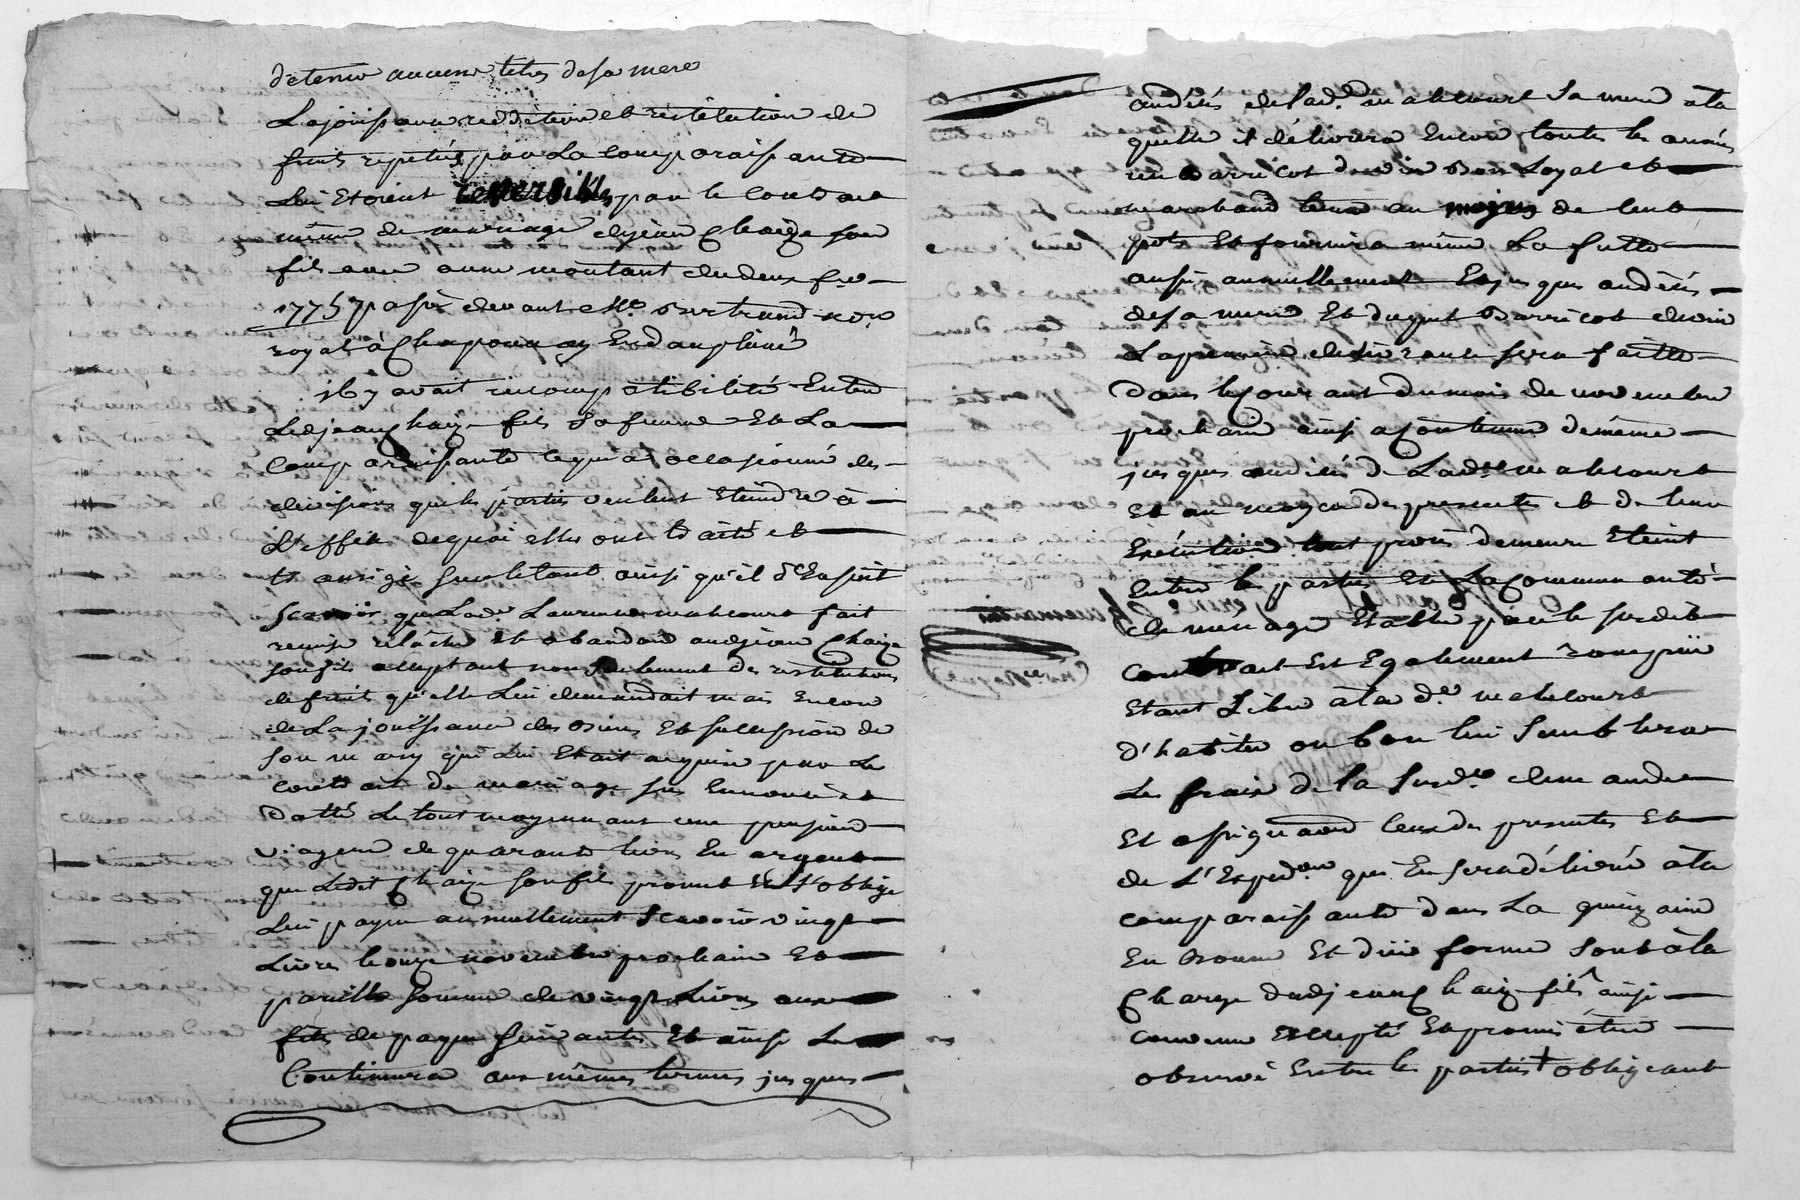 detenir aucune titres de sa mere
La jouissance reddition et restitution de
fruits repetés par la comparaissante
lui etoient reversibles par le contract
même de mariage dejean Chaize son
fils avec anne montant du deux fre
1775 passé devant Me Bertrand nore
royal à Chaponnay En dauphiné
il y avait incompatibilité Entre
Ledjean Chaize fils Sa femme Et La
comparaissante ce qui a occasionné des
divisions que les parties veulent Eteindre à
L'effet de quoi elles ont traité et
transigé sur le tout ainsi qu'il s'Ensuit
Scavoir que Lade Laurence mabcourt fait
remise relache Et abandon audjean Chaize
son fils acceptant non Seulement des restitutions
de fruit qu'elle Lui demandait mais Encore
de La jouissance des Biens Et succession de
son mary qui Lui Etait acquise par Le
contrat de mariage sus Enoncé et
Datté Le tout moyennant une pension
viagere de quarante livres En argent
que Ledit Chaize son fils promet Et s'oblige
Lui payer annuellement Scavoir vingt
Livres le onze novembre prochain Et
pareille somme de vingt Livres aux
fêtes de paques suivantes Et ainsi Le
Continuera aux mêmes termes jusques
audécès de lade mabcourt Sa mere ala
quelle il délivrera Encore toutes les années
un Barricot de vin Bon Loyal et
marchand tenant au moins de cent
pots Et fournira même La futte
aussi annuellement Et jusques audécès
de sa mere Et duquel Barricot de vin
La premiere delivrance sera faitte
Dans le courant du mois de novembre
prochain ainsi a continuer de même
jusques audécés de Lade mabcourt
Et au moyen des presentes et de leur
Exécution tout procès demeure Eteint
Entre les parties Et La Communauté
de menage Etablie par le susdit
contrat Est Egalement rompüe
Etant Libre ala de mabcourt
d'habiter ou bon lui Semblera
Les fraix de la susde demande
Et assignation Ceux des presentes Et
de L'Expedon qui En sera délivré ala
comparaissante dans La quinzaine
En Bonne Et düe forme Sont àla
Charge dudjean Chaize fils ainsi
convenu accepté Et promis être
observé Entre les parties + obligeant